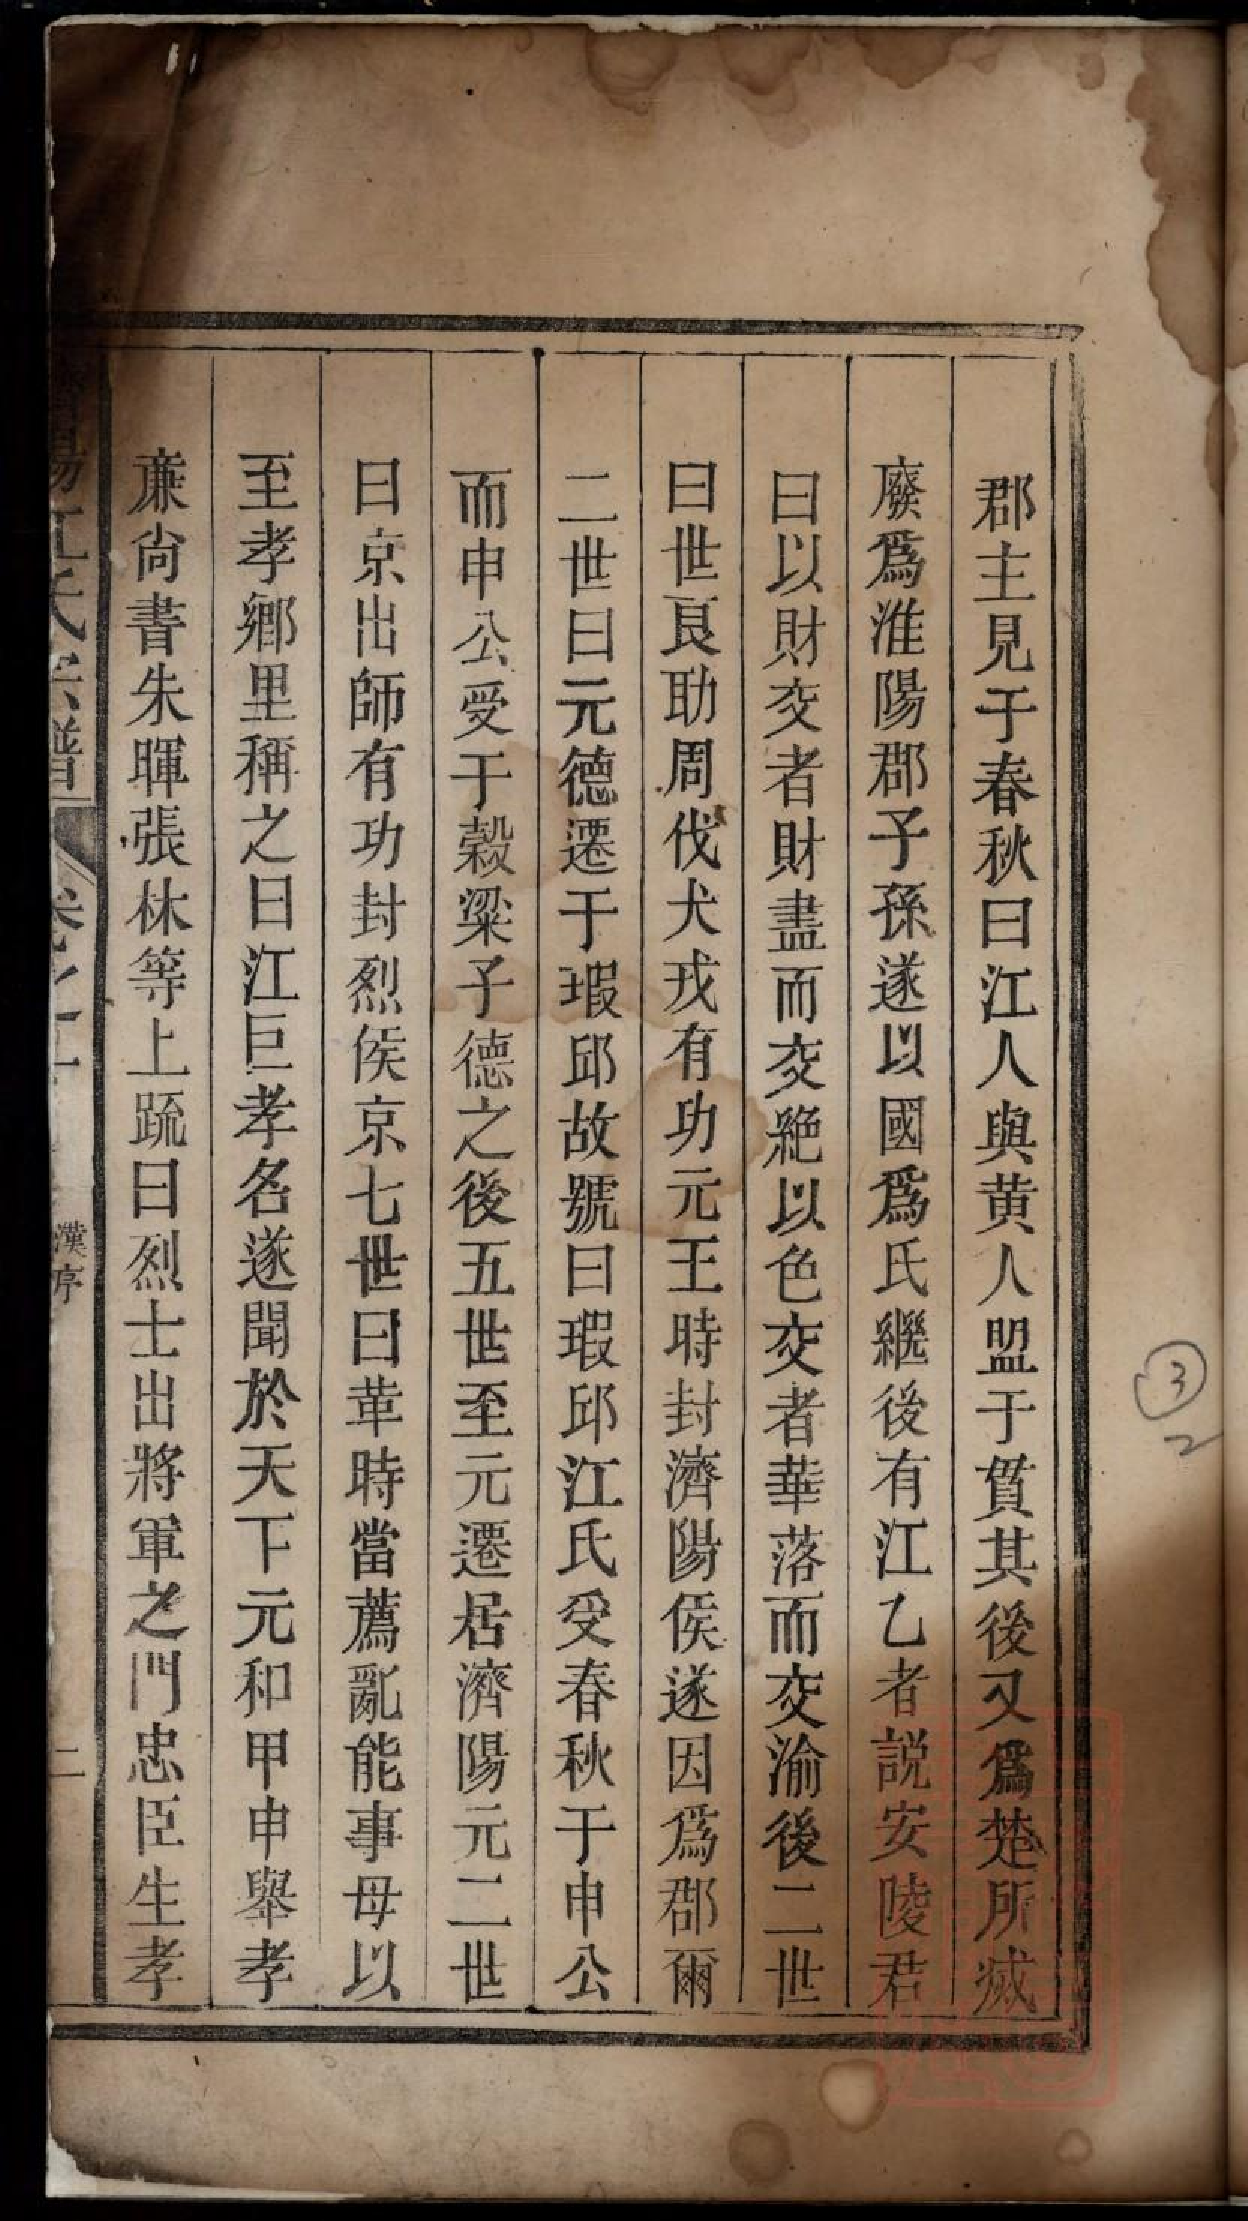 郡主見于春秋曰江人與黄人盟于貫其後又爲楚所滅
廢爲淮陽郡子孫遂以國爲氏繼後有江乙者説安陵君
曰以財交者財盡而交絶以色交者華落而交渝後二世
曰世良助周伐犬戎有功元王時封濟陽侯遂因爲郡爾
二世曰元德遷于瑕邱故號曰瑕邱江氏受春秋于申公
而申公受于榖梁子德之後五世至元遷居濟陽元二世
曰京出師有功封烈侯京七世曰革時當薦亂能事母以
至孝鄉里稱之曰江巨孝名遂聞於天下元和甲申舉孝
亷尙書朱暉張林等上疏曰烈士出將軍之門忠臣生孝
濟陽江氏宗譜
卷之
漢序
二
③
2